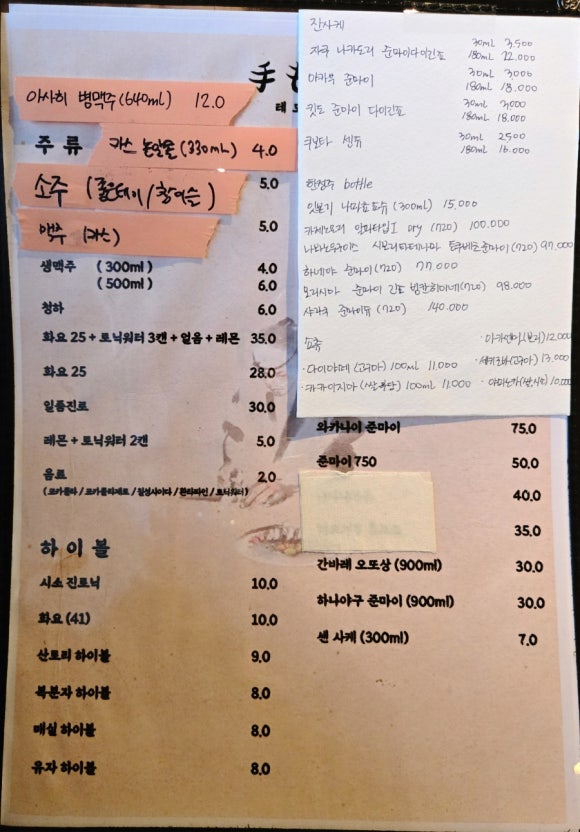 手
테
아사히 병맥주(640ml) 12.0
주 류 카스 논알콜(330ml) 4.0
소주 (쥴스테이/참이슬) 5.0
맥주 (카스) 5.0
생맥주 (300ml) 4.0
(500ml) 6.0
청하 6.0
화요 25 + 토닉워터 3캔 + 얼음 + 레몬 35.0
화요 25 28.0
일품진로 30.0
레몬 + 토닉워터 2캔 5.0
음료 2.0
(코카콜라 / 코카콜라제로 / 칠성사이다 / 환타파인 / 토닉워터)
하 이 볼
시소 진토닉 10.0
화요 (41) 10.0
산토리 하이볼 9.0
복분자 하이볼 8.0
매실 하이볼 8.0
유자 하이볼 8.0
잔사케
자쿠 나카도리 준마이다이긴죠 30ml 3,500
180ml 22,000
야카무 준마이 30ml 3,000
180ml 18,000
킷도 준마이 다이긴죠 30ml 3,000
180ml 18,000
쿠보타 센쥬 30ml 2500
180ml 16,000
한정주 bottle
(300ml) 15,000
Dry (720) 100,000
준마이(720) 97,000
하네야 준마이(720) 77,000
모리시마 준마이 긴죠 (720) 98,000
샤라쿠 준마이 (720) 140,000
쇼츄
12,000
· 다이야메 (고구마) 100ml 11,000
(고구마) 13,000
· 카카이지마 100ml 11,000
10,000
와카나이 준마이 75.0
준마이 750 50.0
40.0
35.0
간바레 오또상 (900ml) 30.0
하나야구 준마이 (900ml) 30.0
센 사케 (300ml) 7.0